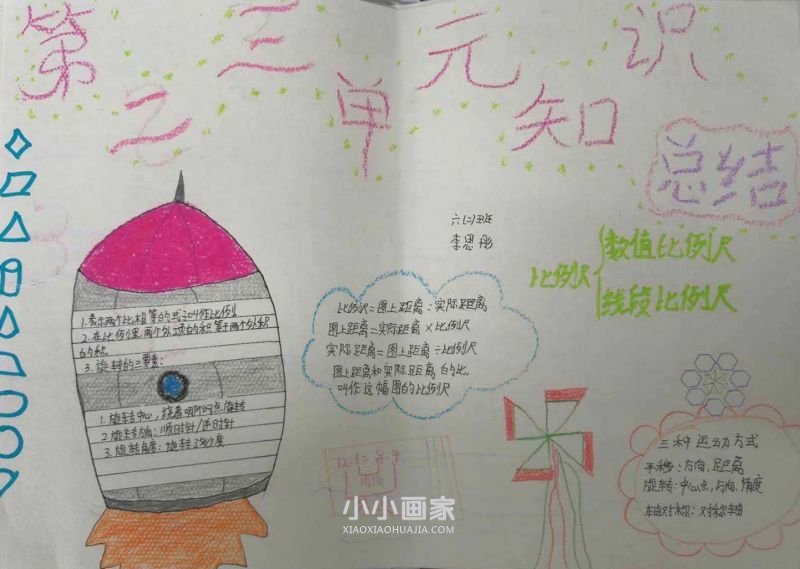 第二三单元知识
总结
六(二)班
李思彤
比例尺
数值比例尺
线段比例尺
1.表示两个比相等的式子叫作比例
2.在比例里,两个外项的积等于两个外积
的积
3.旋转的三要素:
1.旋转中心,绕着哪个点旋转
2.旋转方向:顺时针/逆时针
3.旋转角度:旋转多少度
比例尺=图上距离:实际距离
图上距离=实际距离×比例尺
实际距离=图上距离÷比例尺
图上距离和实际距离的比,
叫作这幅图的比例尺
12:6=8:4
内项
三种运动方式
平移:方向,距离
旋转:中心点,方向,角度
轴对称:对称轴
小小画家
XIAOXIAOHUAJIA.COM